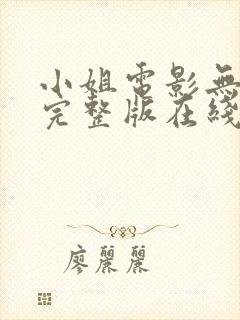 小姐電影無
完整版在綫
廖麗麗